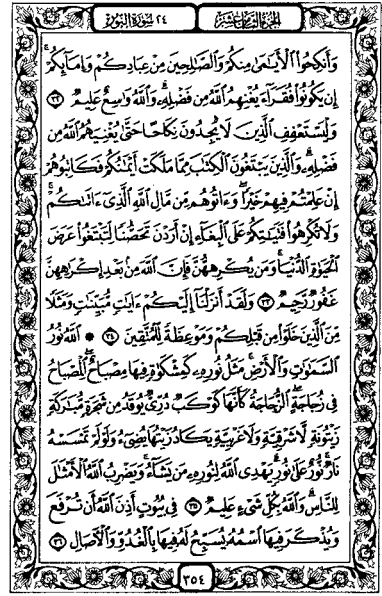 الجزء الثامن عشر
٢٤ سورة النور
وَأَنكِحُوا۟ ٱلْأَيَٰمَىٰ مِنكُمْ وَٱلصَّٰلِحِينَ مِنْ عِبَادِكُمْ وَإِمَآئِكُمْ ۚ
إِن يَكُونُوا۟ فُقَرَآءَ يُغْنِهِمُ ٱللَّهُ مِن فَضْلِهِۦ ۗ وَٱللَّهُ وَٰسِعٌ عَلِيمٌ ٣٢
وَلْيَسْتَعْفِفِ ٱلَّذِينَ لَا يَجِدُونَ نِكَاحًا حَتَّىٰ يُغْنِيَهُمُ ٱللَّهُ مِن
فَضْلِهِۦ ۗ وَٱلَّذِينَ يَبْتَغُونَ ٱلْكِتَٰبَ مِمَّا مَلَكَتْ أَيْمَٰنُكُمْ فَكَاتِبُوهُمْ
إِنْ عَلِمْتُمْ فِيهِمْ خَيْرًا ۖ وَءَاتُوهُم مِّن مَّالِ ٱللَّهِ ٱلَّذِىٓ ءَاتَىٰكُمْ ۚ
وَلَا تُكْرِهُوا۟ فَتَيَٰتِكُمْ عَلَى ٱلْبِغَآءِ إِنْ أَرَدْنَ تَحَصُّنًا لِّتَبْتَغُوا۟ عَرَضَ
ٱلْحَيَوٰةِ ٱلدُّنْيَا ۚ وَمَن يُكْرِههُّنَّ فَإِنَّ ٱللَّهَ مِنۢ بَعْدِ إِكْرَٰهِهِنَّ
غَفُورٌ رَّحِيمٌ ٣٣ وَلَقَدْ أَنزَلْنَآ إِلَيْكُمْ ءَايَٰتٍ مُّبَيِّنَٰتٍ وَمَثَلًا
مِّنَ ٱلَّذِينَ خَلَوْا۟ مِن قَبْلِكُمْ وَمَوْعِظَةً لِّلْمُتَّقِينَ ٣٤ ۞ ٱللَّهُ نُورُ
ٱلسَّمَٰوَٰتِ وَٱلْأَرْضِ ۚ مَثَلُ نُورِهِۦ كَمِشْكَوٰةٍ فِيهَا مِصْبَاحٌ ۖ ٱلْمِصْبَاحُ
فِى زُجَاجَةٍ ۖ ٱلزُّجَاجَةُ كَأَنَّهَا كَوْكَبٌ دُرِّىٌّ يُوقَدُ مِن شَجَرَةٍ مُّبَٰرَكَةٍ
زَيْتُونَةٍ لَّا شَرْقِيَّةٍ وَلَا غَرْبِيَّةٍ يَكَادُ زَيْتُهَا يُضِىٓءُ وَلَوْ لَمْ تَمْسَسْهُ
نَارٌ ۚ نُّورٌ عَلَىٰ نُورٍ ۗ يَهْدِى ٱللَّهُ لِنُورِهِۦ مَن يَشَآءُ ۚ وَيَضْرِبُ ٱللَّهُ ٱلْأَمْثَٰلَ
لِلنَّاسِ ۗ وَٱللَّهُ بِكُلِّ شَىْءٍ عَلِيمٌ ٣٥ فِى بُيُوتٍ أَذِنَ ٱللَّهُ أَن تُرْفَعَ
وَيُذْكَرَ فِيهَا ٱسْمُهُۥ يُسَبِّحُ لَهُۥ فِيهَا بِٱلْغُدُوِّ وَٱلْءَاصَالِ ٣٦
٣٥٤